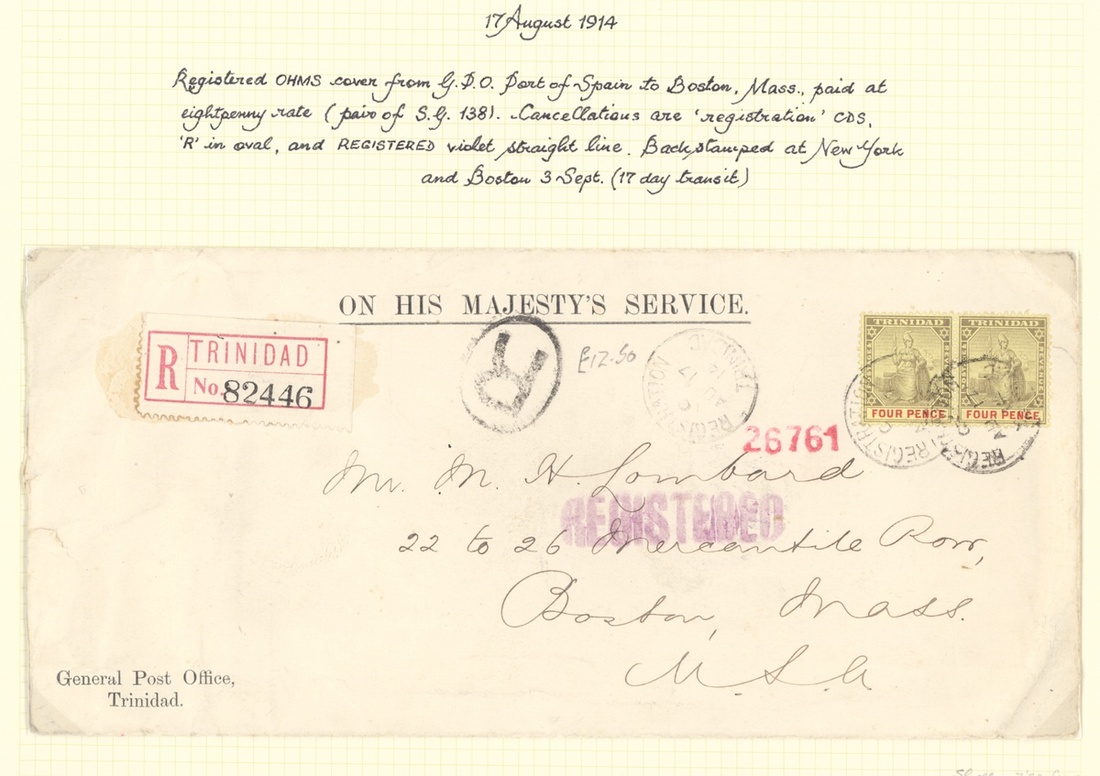 17 August 1914
Registered OHMS cover from G.P.O. Port of Spain to Boston, Mass., paid at
eightpenny rate (pair of S.G. 138). Cancellations are 'registration' CDS,
'R' in oval, and REGISTERED violet straight line. Backstamped at New York
and Boston 3 Sept. (17 day transit)
ON HIS MAJESTY'S SERVICE.
R TRINIDAD
No. 82446
R
£12-50
REGISTRATION TRINIDAD
TRINIDAD TRINIDAD
FOUR PENCE FOUR PENCE
REGISTRATION
REGIS
26761
Mr. M. H. Lombard
REGISTERED
22 to 26 Mercantile Row,
Boston, Mass.
U.S.A.
General Post Office,
Trinidad.